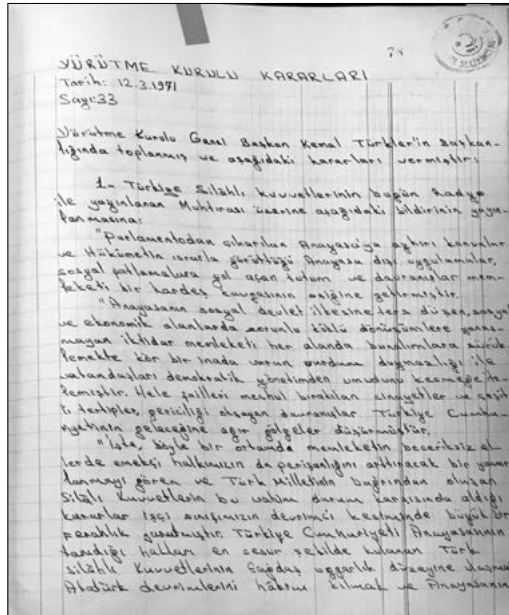 78
YÜRÜTME KURULU KARARLARI
Tarih: 12.3.1971
Sayı: 33
Yürütme Kurulu Genel Başkan Kemal Türkler'in Başkan-
lığında toplanmış ve aşağıdaki kararları vermiştir:
1- Türkiye Silâhlı Kuvvetlerinin bugün Radyo
ile yayınlanan Muhtırası üzerine aşağıdaki bildirinin yayın-
lanmasına:
"Parlamentodan çıkarılan Anayasa'ya aykırı kanunlar
ve Hükümetin ısrarla yürüttüğü Anayasa dışı uygulamalar,
sosyal patlamalara yol açan tutum ve davranışlar mem-
leketi bir kardeş kavgasının eşiğine getirmiştir.
"Anayasanın sosyal devlet ilkesine ters düşen, sosyal
ve ekonomik alanlarda zorunlu köklü dönüşümlere yanaş-
mayan iktidar memleketi her alanda bunalımlara sürük-
lemekte kör bir inada varan vurdum duymazlığı ile
vatandaşları demokratik yönetimden umudunu kesmeğe it-
lemiştir. Hele failleri meçhul bırakılan cinayetler ve çeşit-
li tertipler, gericiliği okşayan davranışlar Türkiye Cumhu-
riyetinin geleceğine ağır gölgeler düşürmüştür.
"İşte, böyle bir ortamda memleketin beceriksiz el-
lerde emekçi halkımızın da perişanlığını arttıracak bir
gören ve Türk Milletinin bağrından oluşan
Silâhlı Kuvvetlerin bu vahim durum karşısında aldığı
kararlar işçi sınıfımızın devrimci kesiminde büyük bir
ferahlık yaratmıştır. Türkiye Cumhuriyeti Anayasasının
tanıdığı hakları en cesur şekilde kulanan Türk
Silâhlı Kuvvetlerinin Çağdaş uygarlık düzeyine ulaşma
Atatürk devrimlerini hâkim kılmak ve Anayasanın